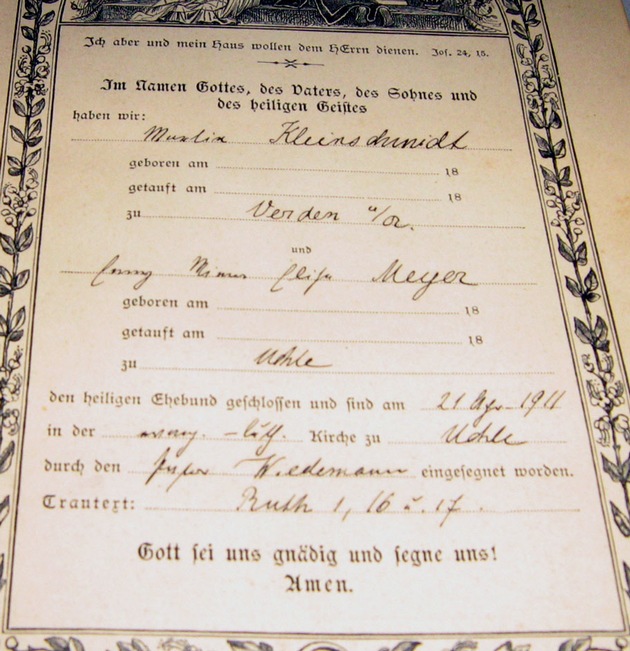 Ich aber und mein Haus wollen dem HErrn dienen. Jos. 24, 15.
Im Namen Gottes, des Vaters, des Sohnes und
des heiligen Geistes
haben wir:
Kleinschmidt
geboren am 18
getauft am 18
zu Verden a/a.
und
Meyer
geboren am 18
getauft am 18
zu Uchle
den heiligen Ehebund geschlossen und sind am 21 Apr. 1911
in der evang. - luth. Kirche zu Uchle
durch den Pastor Wiedemann eingesegnet worden.
Trautext: Ruth 1, 16 u. 17.
Gott sei uns gnädig und segne uns!
Amen.